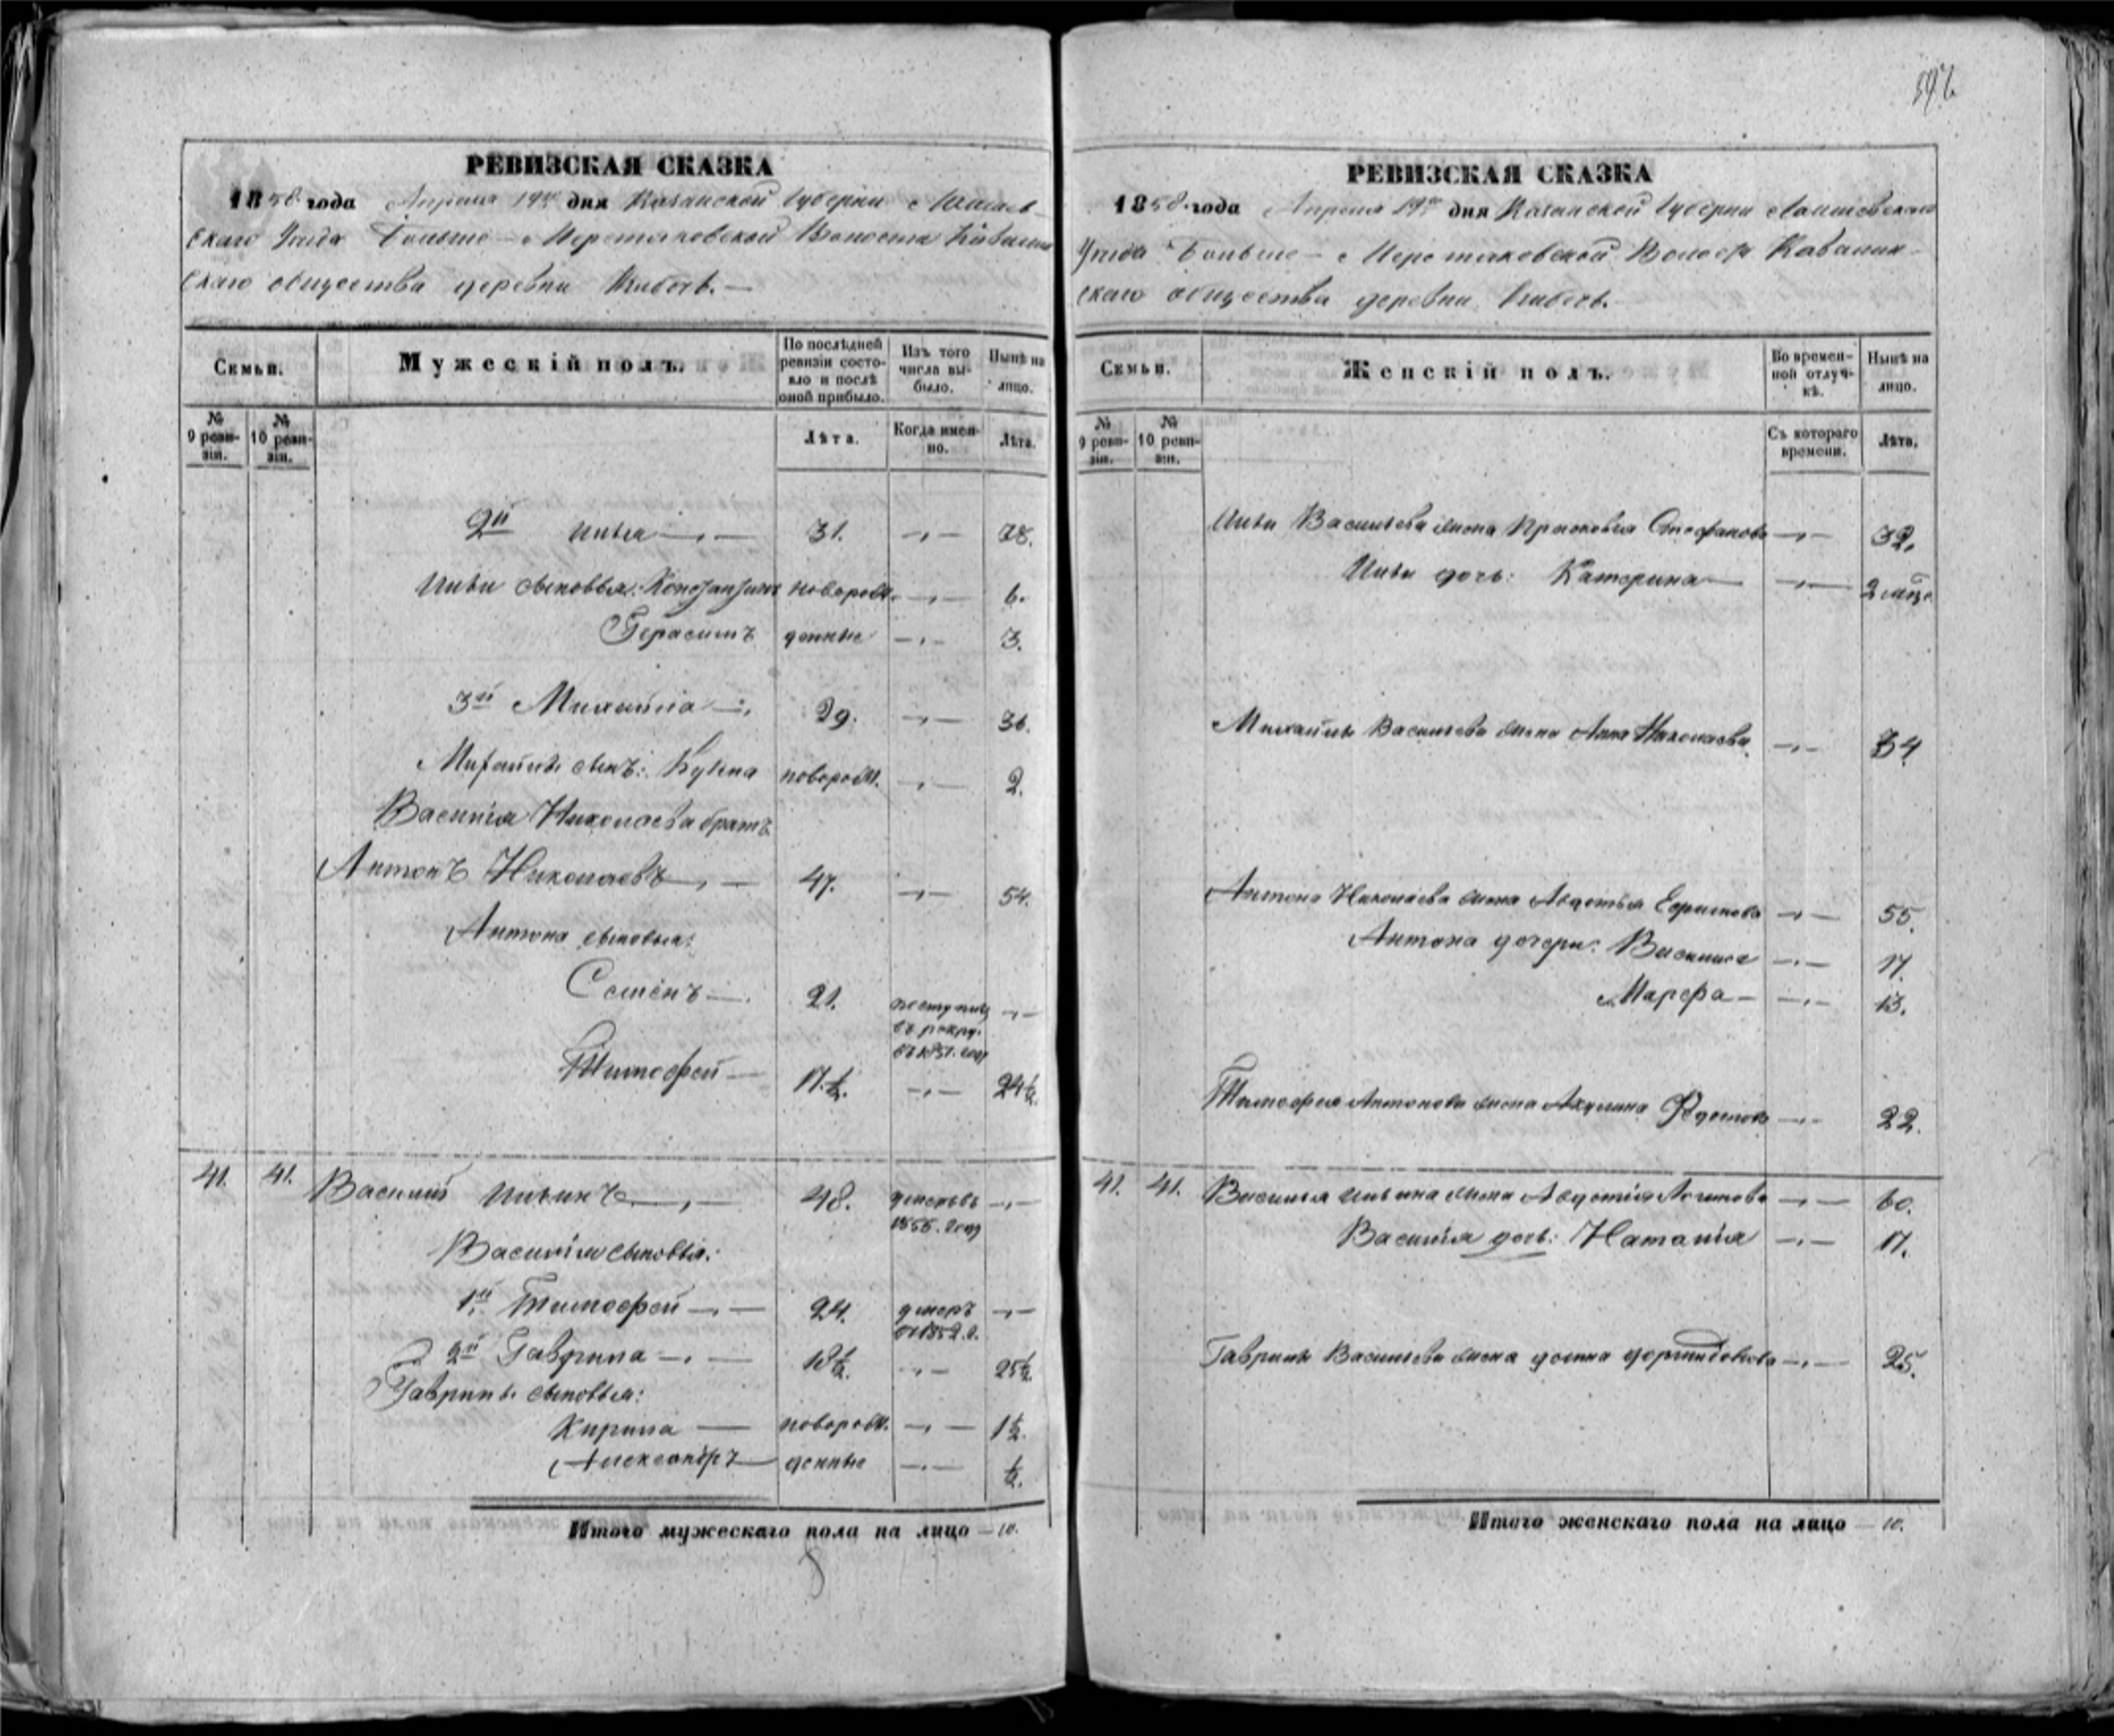 РЕВИЗСКАЯ СКАЗКА
1858 года Апреля 19го дня Казанской Губерніи Лаишев-
скаго Уезда Больше-Меретяковской Волости
скаго общества деревни
Семьи.
Мужескій полъ.
По послѣдней ревизіи состояло и послѣ оной прибыло.
Изъ того числа выбыло.
Нынѣ на лицо.
№ 9 ревизіи.
№ 10 ревизіи.
Лѣта.
Когда именно.
Лѣта.
2й Илья 31. 38.
Ильи сыновья: Константинъ новорож. 6.
Герасимъ денные 3.
3й Михайла 29. 36.
Михайлы сынъ: Кузма новорож. 2.
Василія Николаева братъ
Антонъ Николаевъ 47. 54.
Антона сыновья:
Семенъ 21. поступилъ
въ рекру.
въ 1851. году
Тимофей 17.½. 24½.
41. 41. Василій Ильинъ 48. умеръ въ
1855. году
Василія сыновья:
1й Тимофей 24. умеръ
въ 1852. г.
2й Гаврила 18½. 25½.
Гаврилы сыновья:
Кирила новорож. 1½.
Александръ денные ½.
Итого мужескаго пола на лицо 10.
РЕВИЗСКАЯ СКАЗКА
1858 года Апреля 19го дня Казанской Губерніи Лаишевскаго
Уезда Больше-Меретяковской Волости
скаго общества деревни
Семьи.
Женскій полъ.
Во временной отлучкѣ.
Нынѣ на лицо.
№ 9 ревизіи.
№ 10 ревизіи.
Съ котораго времени.
Лѣта.
Ильи Васильева жена Прасковья Стефанова 32.
Ильи дочь: Катерина 2 мѣс.
Михайлы Васильева жена Анна Николаева 34
Антона Николаева жена Авдотья Ефимова 55.
Антона дочери: Василиса 17.
Марфа 13.
Тимофея Антонова жена Акулина Федотова 22.
41. 41. Василья Ильина жена Авдотія Логинова 60.
Василія дочь: Наталія 17.
Гаврилы Васильева жена Домна 25.
Итого женскаго пола на лицо 10.